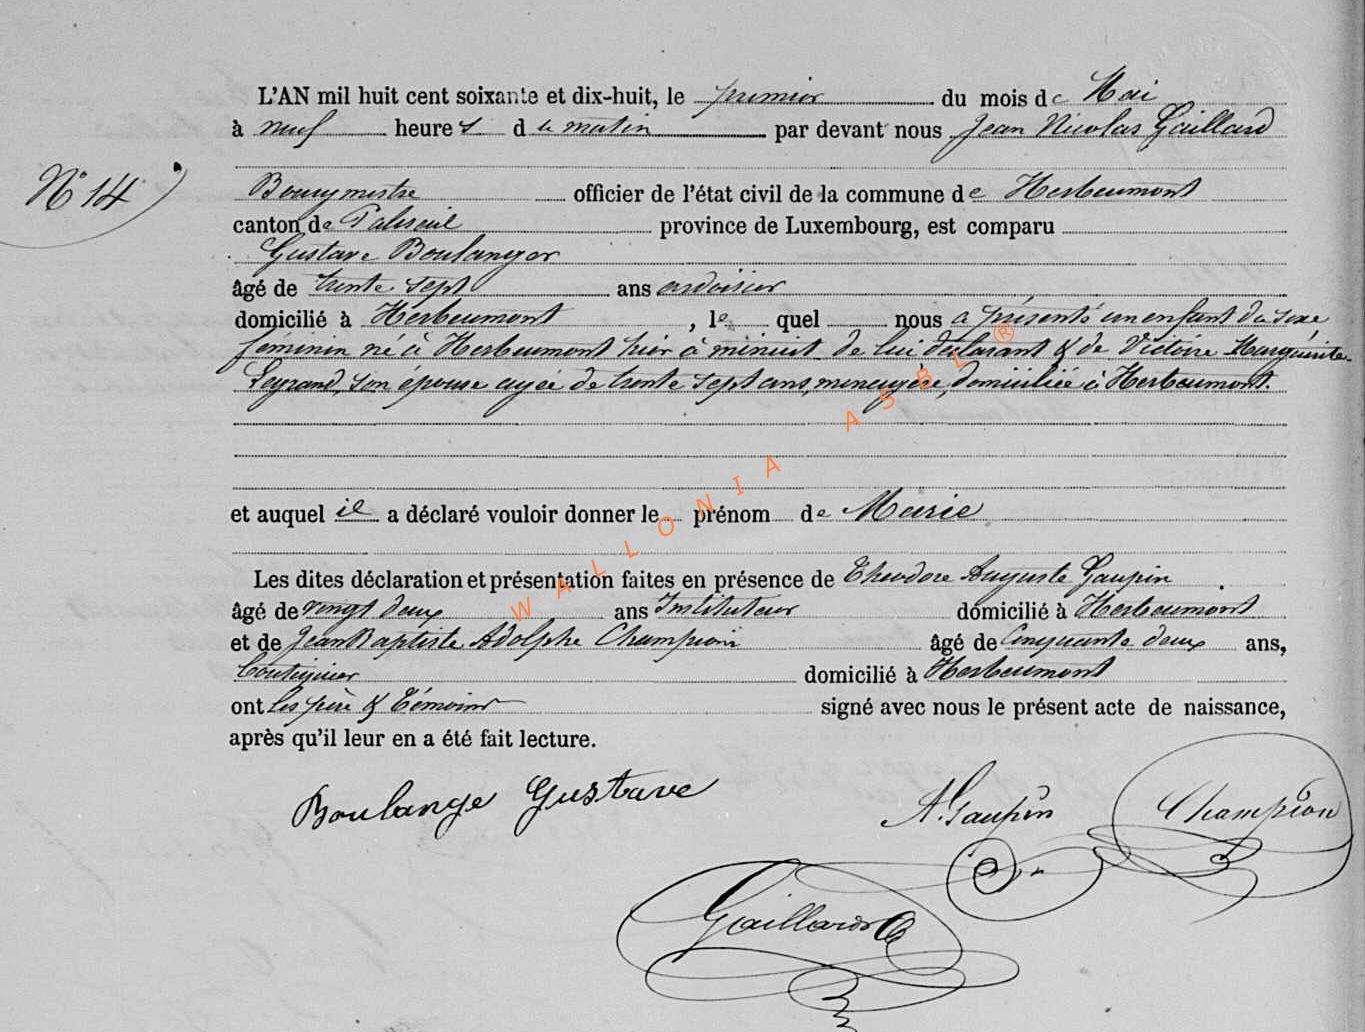 L'AN mil huit cent soixante et dix-huit, le premier du mois de Mai
à neuf heures du matin par devant nous Jean Nicolas Gaillard
N° 14
Bourgmestre officier de l'état civil de la commune de Herbeumont
canton de Paliseul province de Luxembourg, est comparu
Gustave Boulanger
âgé de trente sept ans ardoisier
domicilié à Herbeumont, lequel nous a présenté un enfant du sexe
féminin né à Herbeumont hier à minuit de lui déclarant & de Victoire Marguérite
son épouse agée de trente sept ans, menagère, domiciliée à Herbeumont.
et auquel il a déclaré vouloir donner le prénom de Marie
Les dites déclaration et présentation faites en présence de Théodore Auguste Gaupin
âgé de vingt deux ans Instituteur domicilié à Herbeumont
et de Jean Baptiste Adolphe Champion âgé de Cinquante deux ans,
domicilié à Herbeumont
ont les père & témoins signé avec nous le présent acte de naissance,
après qu'il leur en a été fait lecture.
Boulange Gustave
A. Gaupin
Champion
Gaillard
WALLONIA ASBL ®